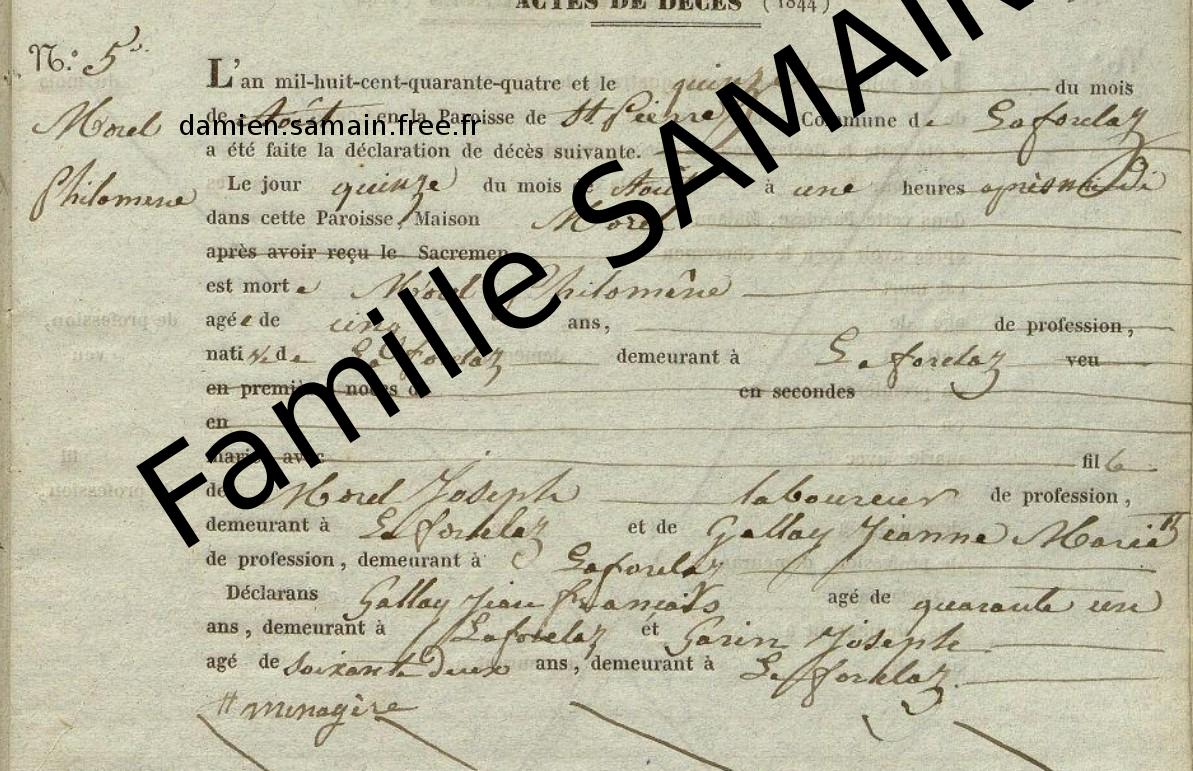 ACTES DE DÉCÈS (1844)
N.° 5
Morel
Philomene
L'an mil-huit-cent-quarante-quatre et le quinze du mois
de Août en la Paroisse de St Pierre Commune de Laforclaz
a été faite la déclaration de décès suivante.
Le jour quinze du mois de Août à une heures après midi
dans cette Paroisse, Maison Morel
après avoir reçu le Sacremen
est morte Morel Philomène
agée de cinq ans, de profession,
native de La forclaz demeurant à La forclaz veu
en première noces de en secondes
en
marié avec fille
de Morel Joseph laboureur de profession,
demeurant à La forclaz et de Gallay Jeanne Marie #
de profession, demeurant à Laforclaz
Déclarans Gallay Jean François agé de quarante un
ans, demeurant à Laforclaz et Garin Joseph
agé de soixante deux ans, demeurant à La forclaz
# ménagère
damien.samain.free.fr
Famille SAMAIN